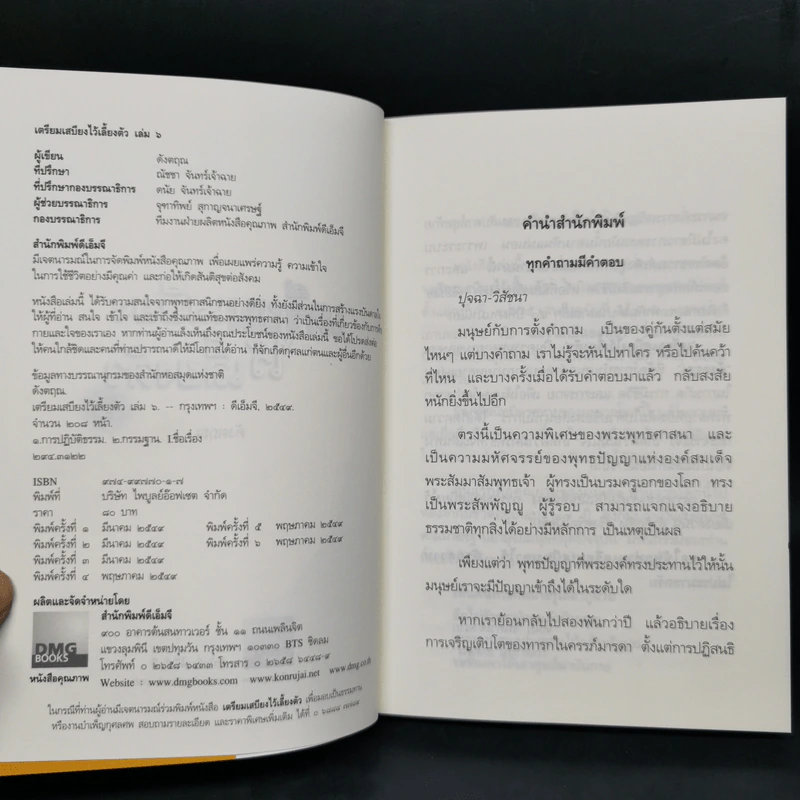 เตรียมเสบียงไว้เลี้ยงตัว เล่ม ๖
ผู้เขียน ดังตฤณ
ที่ปรึกษา ณัชชา จันทร์เจ้าฉาย
ที่ปรึกษากองบรรณาธิการ ดนัย จันทร์เจ้าฉาย
ผู้ช่วยบรรณาธิการ จุฑาทิพย์ สุกาญจนาเศรษฐ์
กองบรรณาธิการ ทีมงานฝ่ายผลิตหนังสือคุณภาพ สำนักพิมพ์ดีเอ็มจี
สำนักพิมพ์ดีเอ็มจี
มีเจตนารมณ์ในการจัดพิมพ์หนังสือคุณภาพ เพื่อเผยแพร่ความรู้ ความเข้าใจ
ในการใช้ชีวิตอย่างมีคุณค่า และก่อให้เกิดสันติสุขต่อสังคม
หนังสือเล่มนี้ ได้รับความสนใจจากพุทธศาสนิกชนอย่างดียิ่ง ทั้งยังมีส่วนในการสร้างแรงบันดาลใจ
ให้ผู้ที่อ่าน สนใจ เข้าใจ และเข้าถึงซึ่งแก่นแท้ของพระพุทธศาสนา ว่าเป็นเรื่องที่เกี่ยวข้องกับ
กายและใจของเราเอง หากท่านผู้อ่านเล็งเห็นถึงคุณประโยชน์ของหนังสือเล่มนี้ ขอได้โปรดส่งต่อ
ให้คนใกล้ชิดและคนที่ท่านปรารถนาดีให้มีโอกาสได้อ่าน ก็จักเกิดกุศลแก่ตนและผู้อื่นอีกด้วย
ข้อมูลทางบรรณานุกรมของสำนักหอสมุดแห่งชาติ
ดังตฤณ.
เตรียมเสบียงไว้เลี้ยงตัว เล่ม ๖. -- กรุงเทพฯ : ดีเอ็มจี, ๒๕๔๙.
จำนวน ๒๐๘ หน้า.
๑.การปฏิบัติธรรม. ๒.กรรมฐาน. I.ชื่อเรื่อง
๒๙๔.๓๑๒๒
ISBN ๙๗๔-๙๙๗๗๐-๑-๗
พิมพ์ที่ บริษัท ไพบูลย์อ๊อฟเซต จำกัด
ราคา ๘๐ บาท
พิมพ์ครั้งที่ ๑ มีนาคม ๒๕๔๙ พิมพ์ครั้งที่ ๕ พฤษภาคม ๒๕๔๙
พิมพ์ครั้งที่ ๒ มีนาคม ๒๕๔๙ พิมพ์ครั้งที่ ๖ พฤษภาคม ๒๕๔๙
พิมพ์ครั้งที่ ๓ มีนาคม ๒๕๔๙
พิมพ์ครั้งที่ ๔ พฤษภาคม ๒๕๔๙
ผลิตและจัดจำหน่ายโดย
DMG
BOOKS
หนังสือคุณภาพ
สำนักพิมพ์ดีเอ็มจี
๙๐๐ อาคารต้นสนทาวเวอร์ ชั้น ๑๑ ถนนเพลินจิต
แขวงลุมพินี เขตปทุมวัน กรุงเทพฯ ๑๐๓๓๐ BTS ชิดลม
โทรศัพท์ ๐ ๒๖๕๘ ๖๔๓๓ โทรสาร ๐ ๒๖๕๘ ๖๔๔๘-๙
Website : www.dmgbooks.com www.konrujai.net www.dmg.co.th
ในกรณีที่ท่านผู้อ่านมีเจตนารมณ์ร่วมพิมพ์หนังสือ เตรียมเสบียงไว้เลี้ยงตัว เพื่อมอบเป็นธรรมทาน
หรืองานบำเพ็ญกุศลศพ สอบถามรายละเอียด และราคาพิเศษเพิ่มเติม ได้ที่
คำนำสำนักพิมพ์
ทุกคำถามมีคำตอบ
ปุจฉา-วิสัชนา
มนุษย์กับการตั้งคำถาม เป็นของคู่กันตั้งแต่สมัย
ไหนๆ แต่บางคำถาม เราไม่รู้จะหันไปหาใคร หรือไปค้นคว้า
ที่ไหน และบางครั้งเมื่อได้รับคำตอบมาแล้ว กลับสงสัย
หนักยิ่งขึ้นไปอีก
ตรงนี้เป็นความพิเศษของพระพุทธศาสนา และ
เป็นความมหัศจรรย์ของพุทธปัญญาแห่งองค์สมเด็จ
พระสัมมาสัมพุทธเจ้า ผู้ทรงเป็นบรมครูเอกของโลก ทรง
เป็นพระสัพพัญญู ผู้รู้รอบ สามารถแจกแจงอธิบาย
ธรรมชาติทุกสิ่งได้อย่างมีหลักการ เป็นเหตุเป็นผล
เพียงแต่ว่า พุทธปัญญาที่พระองค์ทรงประทานไว้ให้นั้น
มนุษย์เราจะมีปัญญาเข้าถึงได้ในระดับใด
หากเราย้อนกลับไปสองพันกว่าปี แล้วอธิบายเรื่อง
การเจริญเติบโตของทารกในครรภ์มารดา ตั้งแต่การปฏิสนธิ